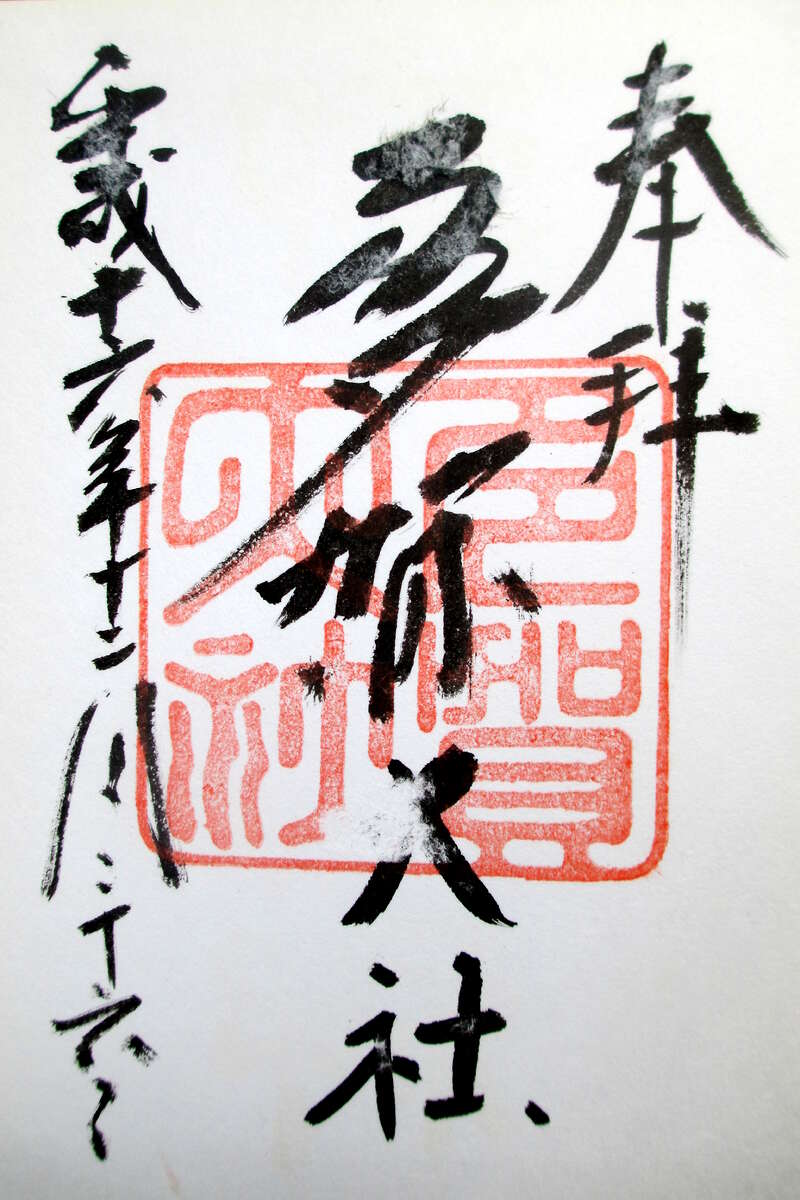 奉拝
多賀大社
平成十六年十二月二十六日
多賀
大社